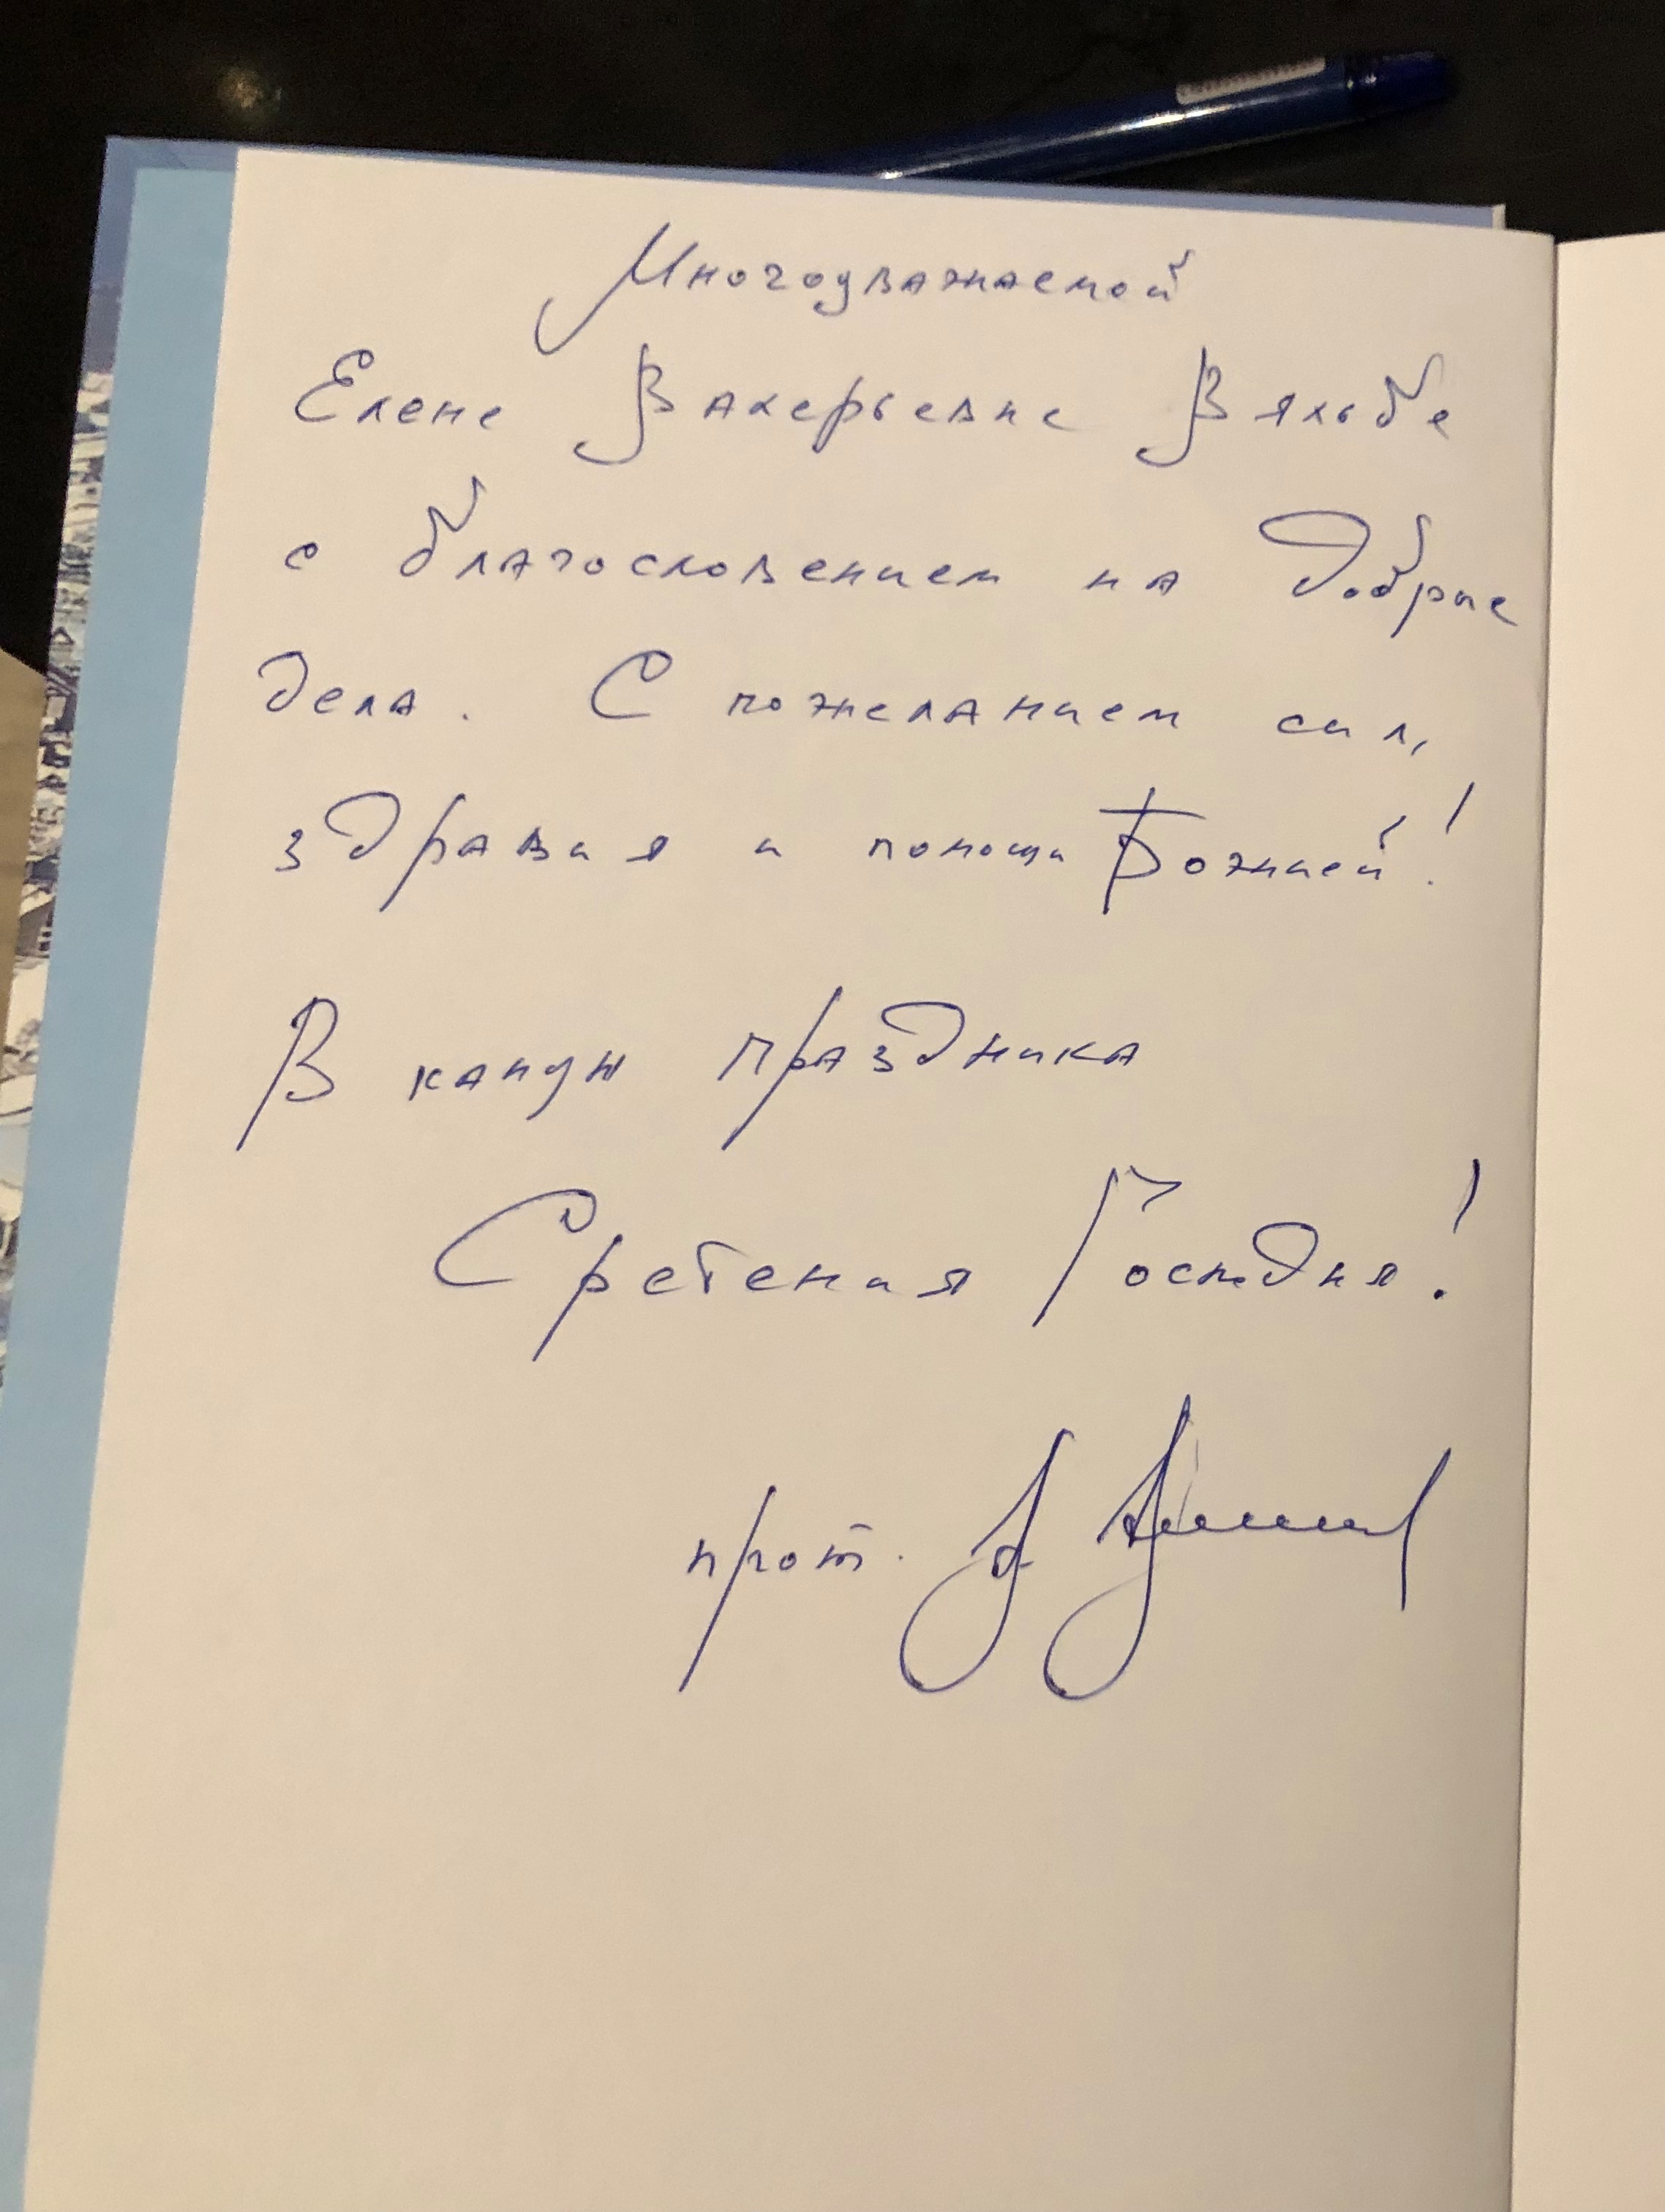 Многоуважаемой
Елене Валерьевне Вяльбе
с благословением на добрые
дела. С пожеланием сил,
здравия и помощи Божией!
В канун праздника
Сретения Господня!
прот.